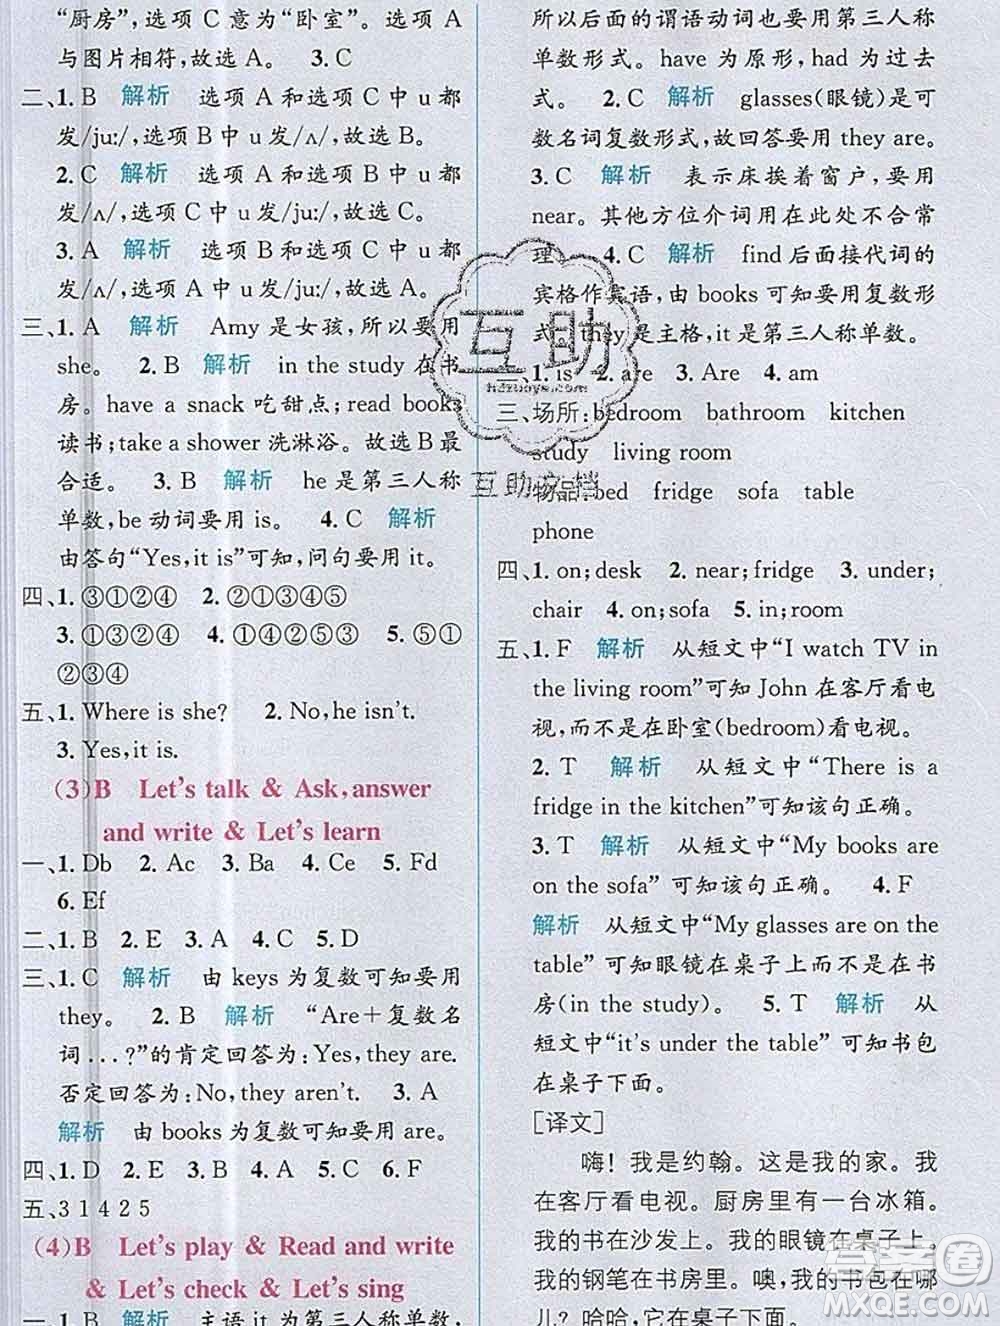 “厨房”,选项 C 意为“卧室”。选项 A
与图片相符,故选 A。 3. C
二、1. B 解析 选项 A 和选项 C 中 u 都
发/juː/,选项 B 中 u 发/ʌ/,故选 B。
2. C 解析 选项 A 和选项 B 中 u 都
发/ʌ/,选项 C 中 u 发/juː/,故选 C。
3. A 解析 选项 B 和选项 C 中 u 都
发/ʌ/,选项 A 中 u 发/juː/,故选 A。
三、1. A 解析 Amy 是女孩,所以要用
she。 2. B 解析 in the study 在书
房。have a snack 吃甜点;read books
读书;take a shower 洗淋浴。故选 B 最
合适。 3. B 解析 he 是第三人称
单数,be 动词要用 is。 4. C 解析
由答句“Yes,it is”可知,问句要用 it。
四、1. ③①②④ 2. ②③①④⑤
3. ①③②④ 4. ①④②⑤③ 5. ⑤①
②③④
五、1. Where is she? 2. No,he isn't.
3. Yes,it is.
(3)B Let's talk & Ask,answer
and write & Let's learn
一、1. Db 2. Ac 3. Ba 4. Ce 5. Fd
6. Ef
二、1. B 2. E 3. A 4. C 5. D
三、1. C 解析 由 keys 为复数可知要用
they。 2. B 解析 “Are＋复数名
词...?”的肯定回答为:Yes,they are.
否定回答为:No,they aren't. 3. A
解析 由 books 为复数可知要用 are。
四、1. D 2. E 3. B 4. A 5. C 6. F
五、3 1 4 2 5
(4)B Let's play & Read and write
& Let's check & Let's sing
一、1. B 解析 主语 it 为第三人称单数,
所以后面的谓语动词也要用第三人称
单数形式。have 为原形,had 为过去
式。 2. C 解析 glasses(眼镜)是可
数名词复数形式,故回答要用 they are。
3. C 解析 表示床挨着窗户,要用
near。其他方位介词用在此处不合常
理。 4. C 解析 find 后面接代词的
宾格作宾语,由 books 可知要用复数形
式。they 是主格,it 是第三人称单数。
二、1. is 2. are 3. Are 4. am
三、场所:bedroom bathroom kitchen
study living room
物品:bed fridge sofa table
phone
四、1. on;desk 2. near;fridge 3. under;
chair 4. on;sofa 5. in;room
五、1. F 解析 从短文中“I watch TV in
the living room”可知 John 在客厅看电
视,而不是在卧室(bedroom)看电视。
2. T 解析 从短文中“There is a
fridge in the kitchen”可知该句正确。
3. T 解析 从短文中“My books are
on the sofa” 可知该句正确。 4. F
解析 从短文中“My glasses are on the
table” 可知眼镜在桌子上而不是在书
房(in the study)。 5. T 解析 从
短文中“it's under the table” 可知书包
在桌子下面。
[译文]
嗨! 我是约翰。这是我的家。我
在客厅看电视。厨房里有一台冰箱。
我的书在沙发上。我的眼镜在桌子上。
我的钢笔在书房里。噢,我的书包在哪
儿? 哈哈,它在桌子下面。
互助
hdzuoye.com
互助文档
答案圈
MXQE.COM